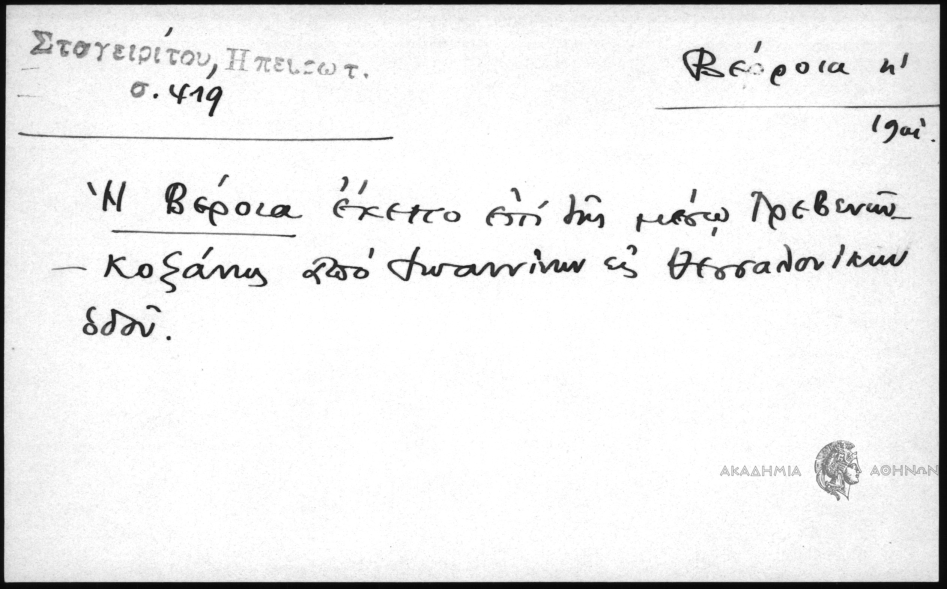 Σταγειρίτου, Ηπειρωτ.
σ. 419
Βέρροια κ'
Ἡ Βέροια ἔκειτο ἐπί τῆς μέσῳ Γρεβενῶν
– Κοζάνης ἀπό Ἰωαννίνων εἰς Θεσσαλονίκην
ὁδοῦ.
ΑΚΑΔΗΜΙΑ ΑΘΗΝΩΝ